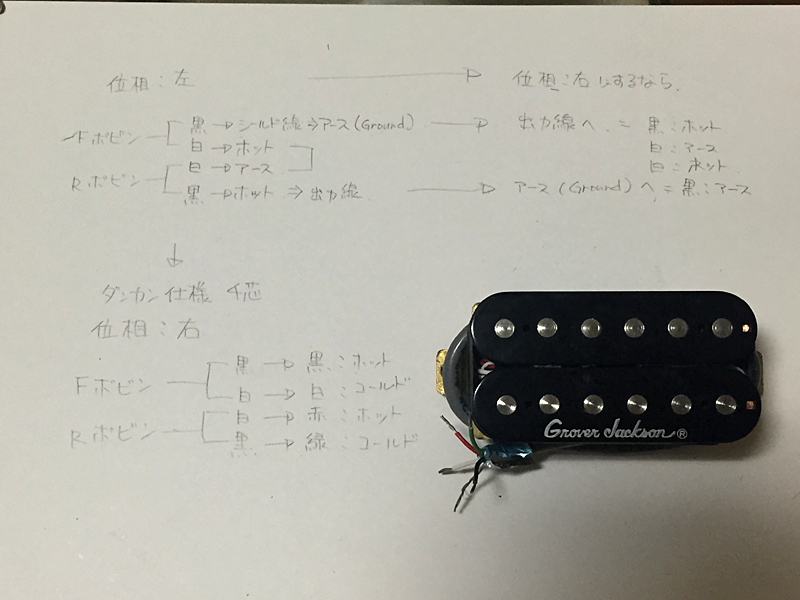 位相:左 → 位相:右にするなら、
Fボビン 黒→シールド線⇒アース(Ground) → 出力線へ = 黒:ホット
白→ホット 白:アース
Rボビン 白→アース 白:ホット
黒→ホット⇒出力線 → アース(Ground)へ = 黒:アース
↓
ダンカン仕様 4芯
位相:右
Fボビン 黒→黒:ホット
白→白:コールド
Rボビン 白→赤:ホット
黒→緑:コールド
Grover Jackson®